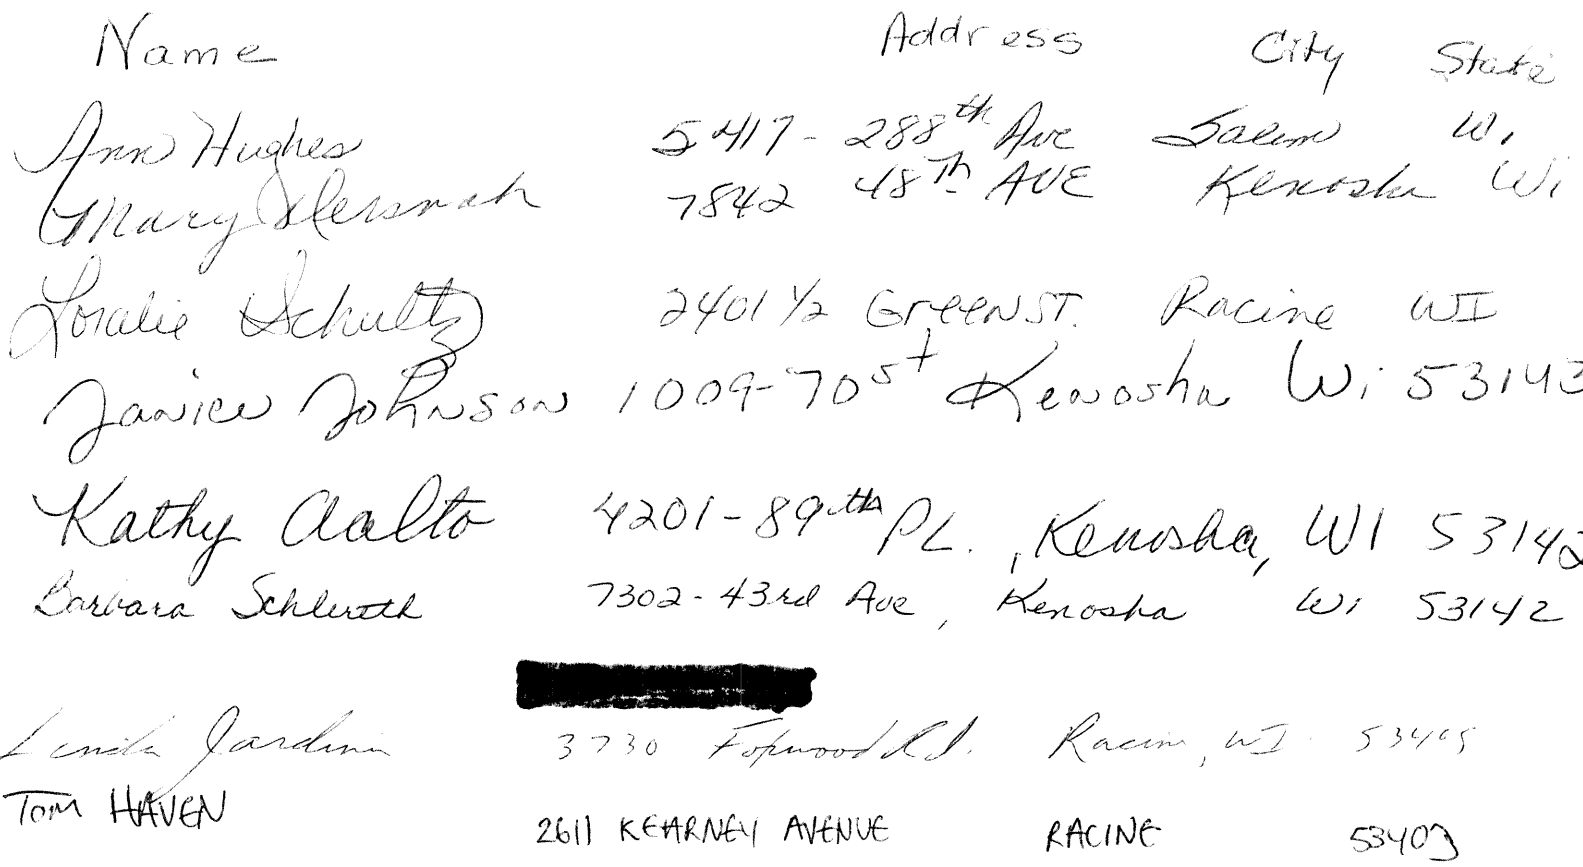 Name Address City State
Ann Hughes 5417 - 288th Ave Salem Wi
Mary 7842 48Th AVE Kenosha Wi
Loralie Schultz 2401 1/2 Green ST. Racine WI
Janice Johnson 1009-70 st Kenosha Wi 53143
Kathy Aalto 4201-89th PL., Kenosha, WI 53142
Barbara 7302-43rd Ave, Kenosha Wi 53142
Linda 3730 Rd. Racine, WI
Tom HAVEN 2611 KEARNEY AVENUE RACINE 53403